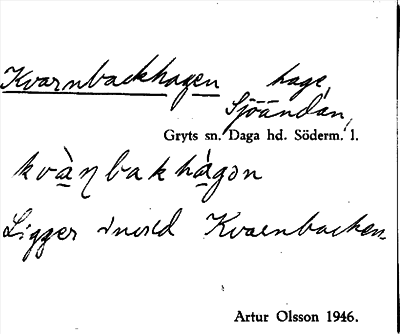 Kvarnbackhagen hage,
Sjöändan,
Gryts sn. Daga hd. Söderm. l.
kvàηbakhàgon
Ligger invid Kvarnbacken.
Artur Olsson 1946.